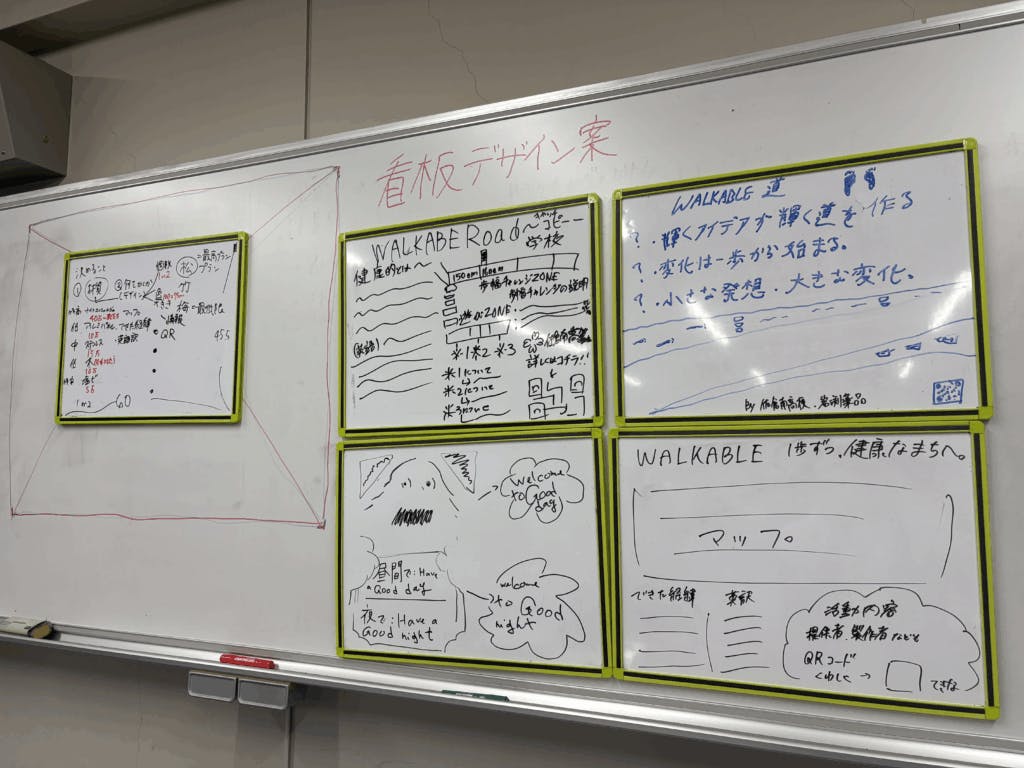 看板デザイン案
決めること
①材質
②何をかくか
(デザイン)
松=最高プラン
プラン
竹
梅=最低な
マップ
できた経緯
英語訳
QR
455
60
WALKABE Road~
学校
健康的とは~
150cm
歩幅チャレンジZONE
歩幅チャレンジの説明
ZONE:
(英語)
※1 ※2 ※3
詳しくはコチラ!!
※1について
※2について
※3について
WALKABLE 道
?・輝くアイデアが輝く道を作る
?・変化は一歩から始まる。
?・小さな発想・大きな変化。
by 佐倉南高校・岩渕薬品
welcome
to Good
day
昼間で:Have
a Good day
夜で:Have a
Good night
welcome
to Good
night
WALKABLE 1歩ずつ、健康なまちへ。
マップ。
できた経緯
英訳
活動内容
提供者 製作者などと
QRコード
くわしく→